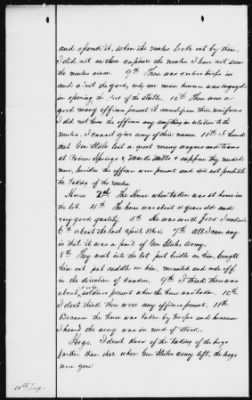 and opened it, when the mules broke out by them
I did not see them capture the mules I have not seen
the mules since 9th There was other troops in
and a out de good, only one man however was engaged
in opening the door of the stable. 10th There were a
good many officers present it seemed from their uniforms
I did not hear the officers say anything in relation to the
mules, I cannot give any of their names. 11th I heard
that Gen Steele lost a great many wagons and teams
at Poison Springs & Marks Mills & suppose they needed
mules, besides the officers were present and did not prohibit
the taking of the mules
Horse 2nd. The Horse when taken was at home in
the lot. 4th The horse was about 6 years old and
very good quality 5th He was worth $
6th about the last April 1864. 7th All I can say
is that it was a part of Gen Steeles Army.
8th They went into the lot put bridle on him, brought
him out put saddle on him, mounted and rode off
in the direction of Camden. 9th I think there was
about soldiers present when the horse was taken 10th
I dont think there were any officers present. 11th
Because the horse was taken by troops and because
I heard the army was in need of stock.
Hogs. I dont know of the taking of the hogs
farther than that when Gen Steeles army left, the hogs
were gone